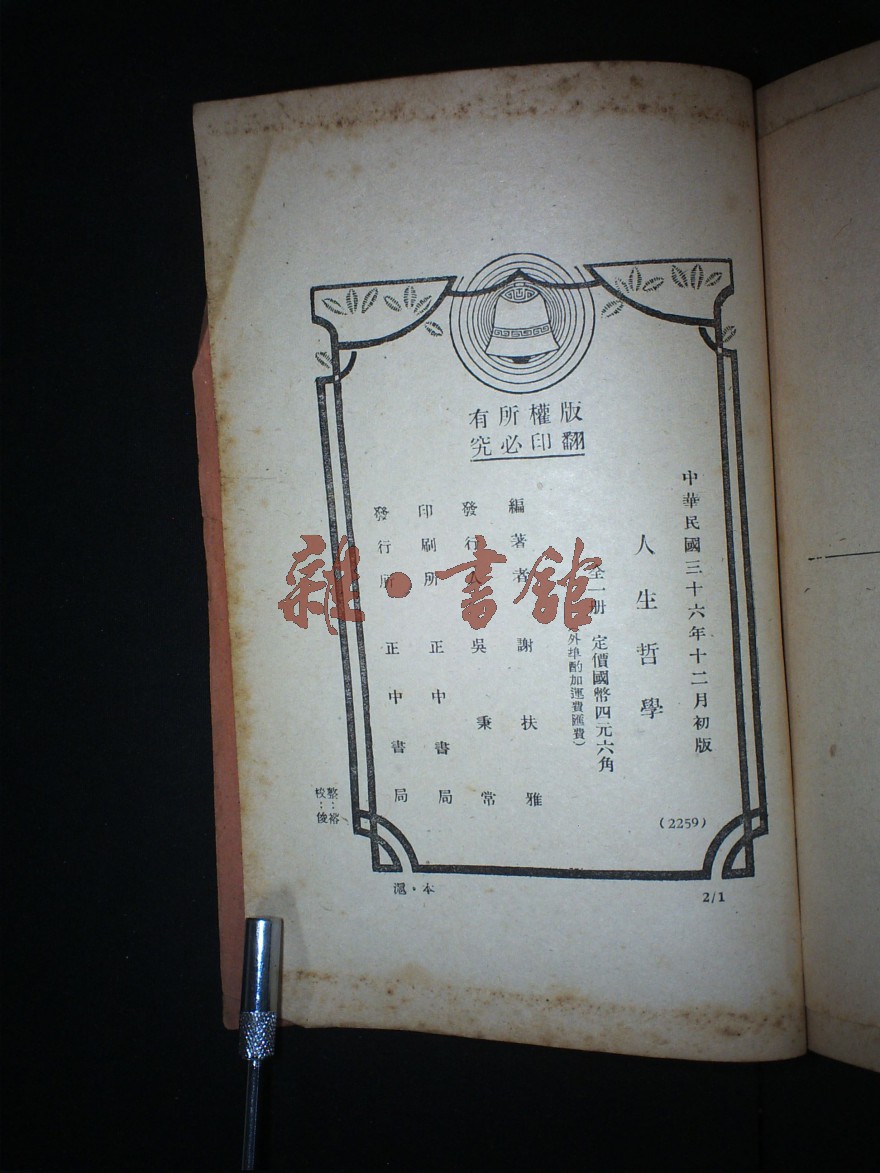 版權所有
翻印必究
中華民國三十六年十二月初版
人生哲學
全一册 定價國幣四元六角
(外埠酌加運費匯費)
編著者 謝扶雅
發行人 吳秉常
印刷所 正中書局
發行所 正中書局
(2259)
整:裕
校:俊
滬・本
2/1
雜・書館